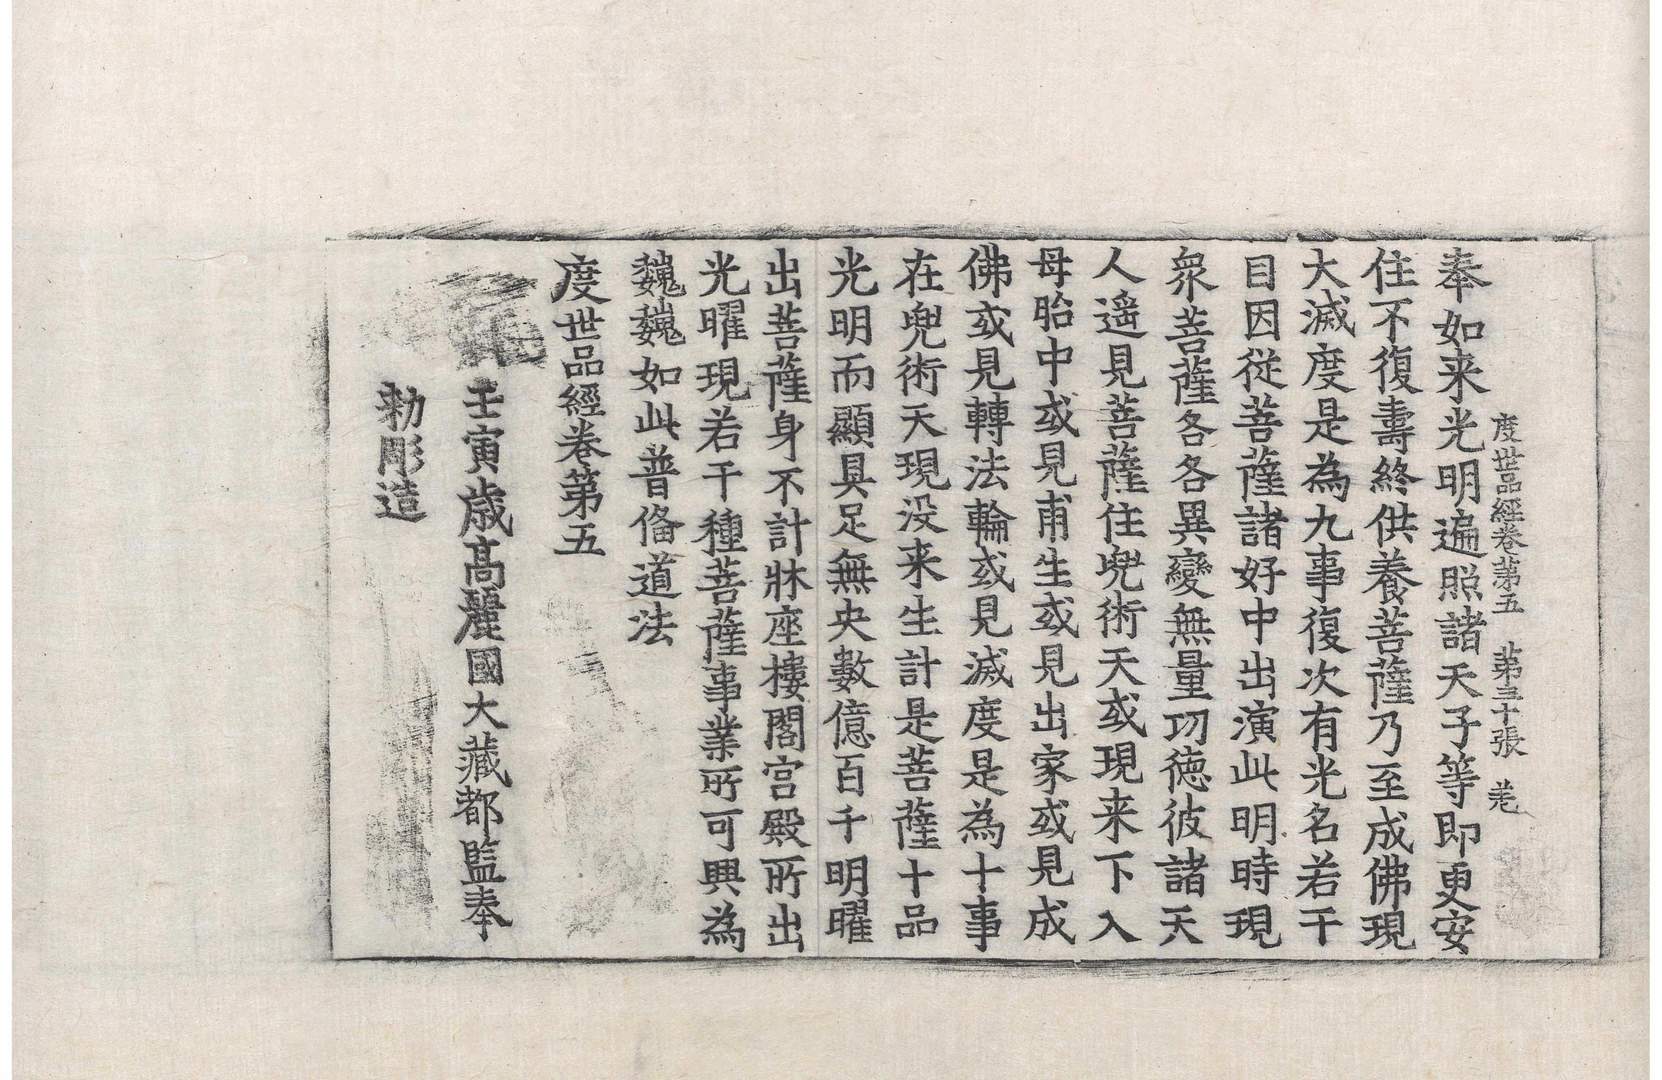 度世品經卷第五 第三十張 恙
奉如来光明遍照諸天子等即更安
住不復壽終供養菩薩乃至成佛現
大滅度是為九事復次有光名若干
目因従菩薩諸好中出演此明時現
衆菩薩各各異變無量㓛徳彼諸天
人遥見菩薩住兜術天或現来下入
母胎中或見甫生或見出家或見成
佛或見轉法輪或見滅度是為十事
在兜術天現没来生計是菩薩十品
光明而顯具足無央數億百千明曜
出菩薩身不計牀座樓閣宫殿所出
光曜現若干種菩薩事業所可興為
巍巍如此普俻道法
度世品經卷第五
壬寅歳髙麗國大藏都監奉
勑彫造